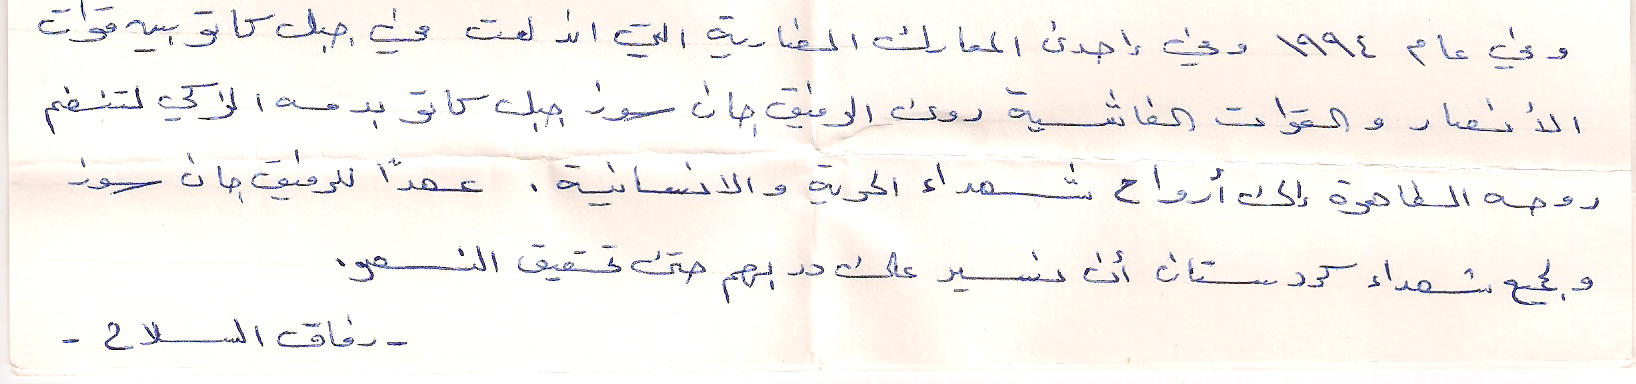 وفي عام ١٩٩٤ وفي إحدى المعارك الضارية التي اندلعت في جبل كاتو بين قوات
الأنصار والقوات الفاشية روى الرفيق جان سوز جبل كاتو بدمه الزكي لتنضم
روحه الطاهرة إلى أرواح شهداء الحرية والانسانية. عهداً للرفيق جان سوز
ولجميع شهداء كردستان أن نسير على دربهم حتى تحقيق النصر.
- رفاق السلاح -